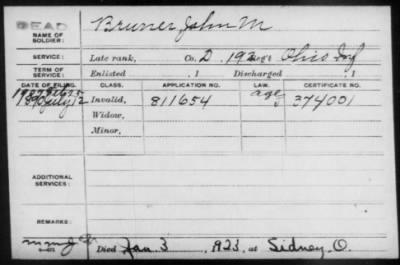 DEAD
NAME OF SOLDIER: Bruner John M
SERVICE: Late rank, Co. D, 192 Reg't Ohio Inf
TERM OF SERVICE: Enlisted , 1 Discharged , 1
DATE OF FILING. CLASS. APPLICATION NO. LAW. CERTIFICATE NO.
1890 July 12 Invalid, 811654 age 374001
Widow,
Minor,
ADDITIONAL SERVICES:
REMARKS:
Died Jan. 3, 1923, at Sidney, O.